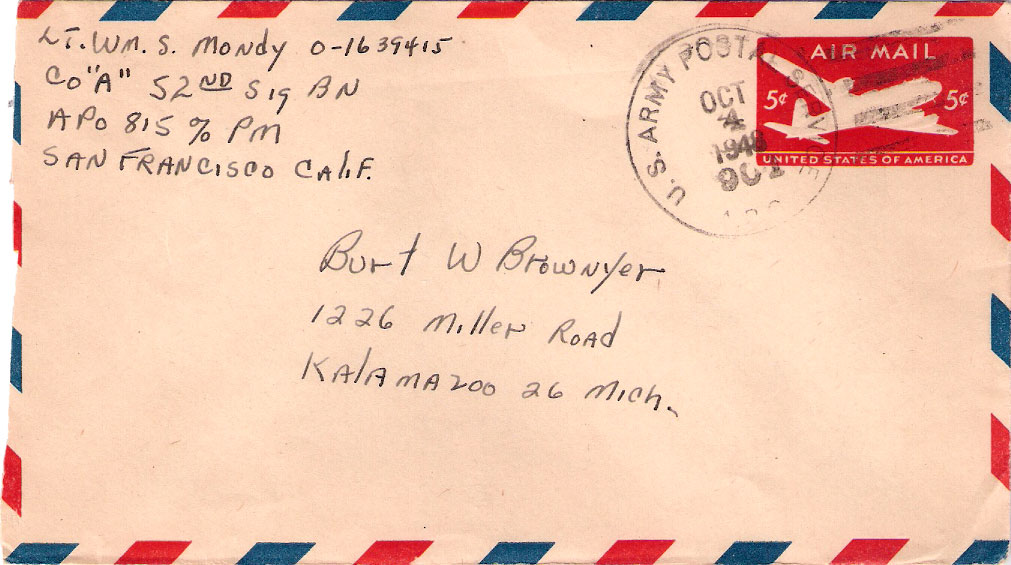 LT. Wm. S. Mondy O-1639415
Co "A" 52ND Sig BN
APO 815 % PM
SAN FRANCISCO CALIF.
U. S. ARMY POSTAL SERVICE
OCT
4
1948
AIR MAIL
5¢ 5¢
UNITED STATES OF AMERICA
Burt W Brownyer
1226 Miller Road
Kalamazoo 26 Mich.